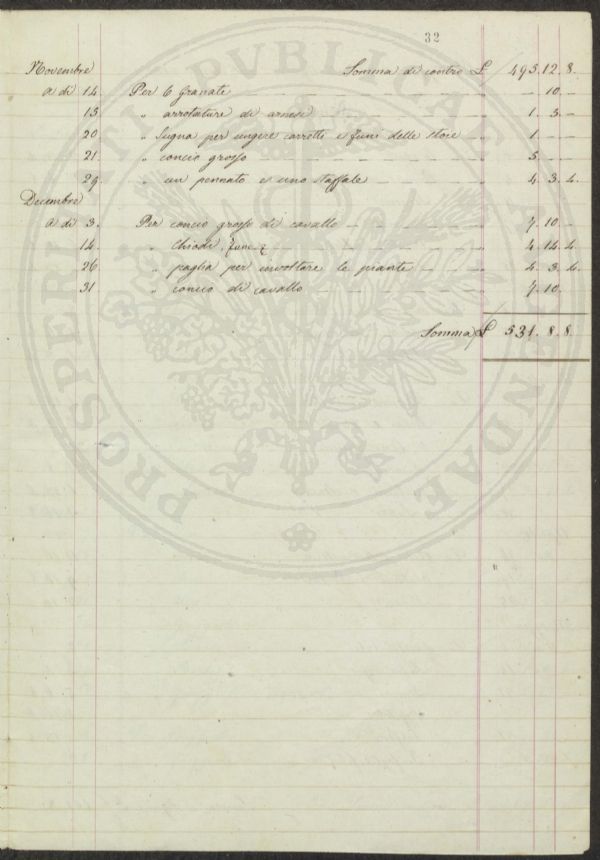 32
Novembre Somma di contro £ 495.12.8.
a di 14. Per 6 granate — 10. —
15. „ arrotature di arnesi 1. 3. —
20 „ Sugna per ungere carretti e funi delle stoie 1. — —
21. „ concio grosso 5. — —
29. „ un pennato e uno staffale 4. 3. 4.
Decembre
a di 3. Per concio grosso di cavallo 7. 10. —
14. „ Chiodi, funi 4. 14. 4
26 „ paglia per involtare le piante 4. 3. 4.
31 „ concio di cavallo 7. 10.
Somma £ 531. 8. 8.
PROSPERITATI PVBLICAE AVGENDAE